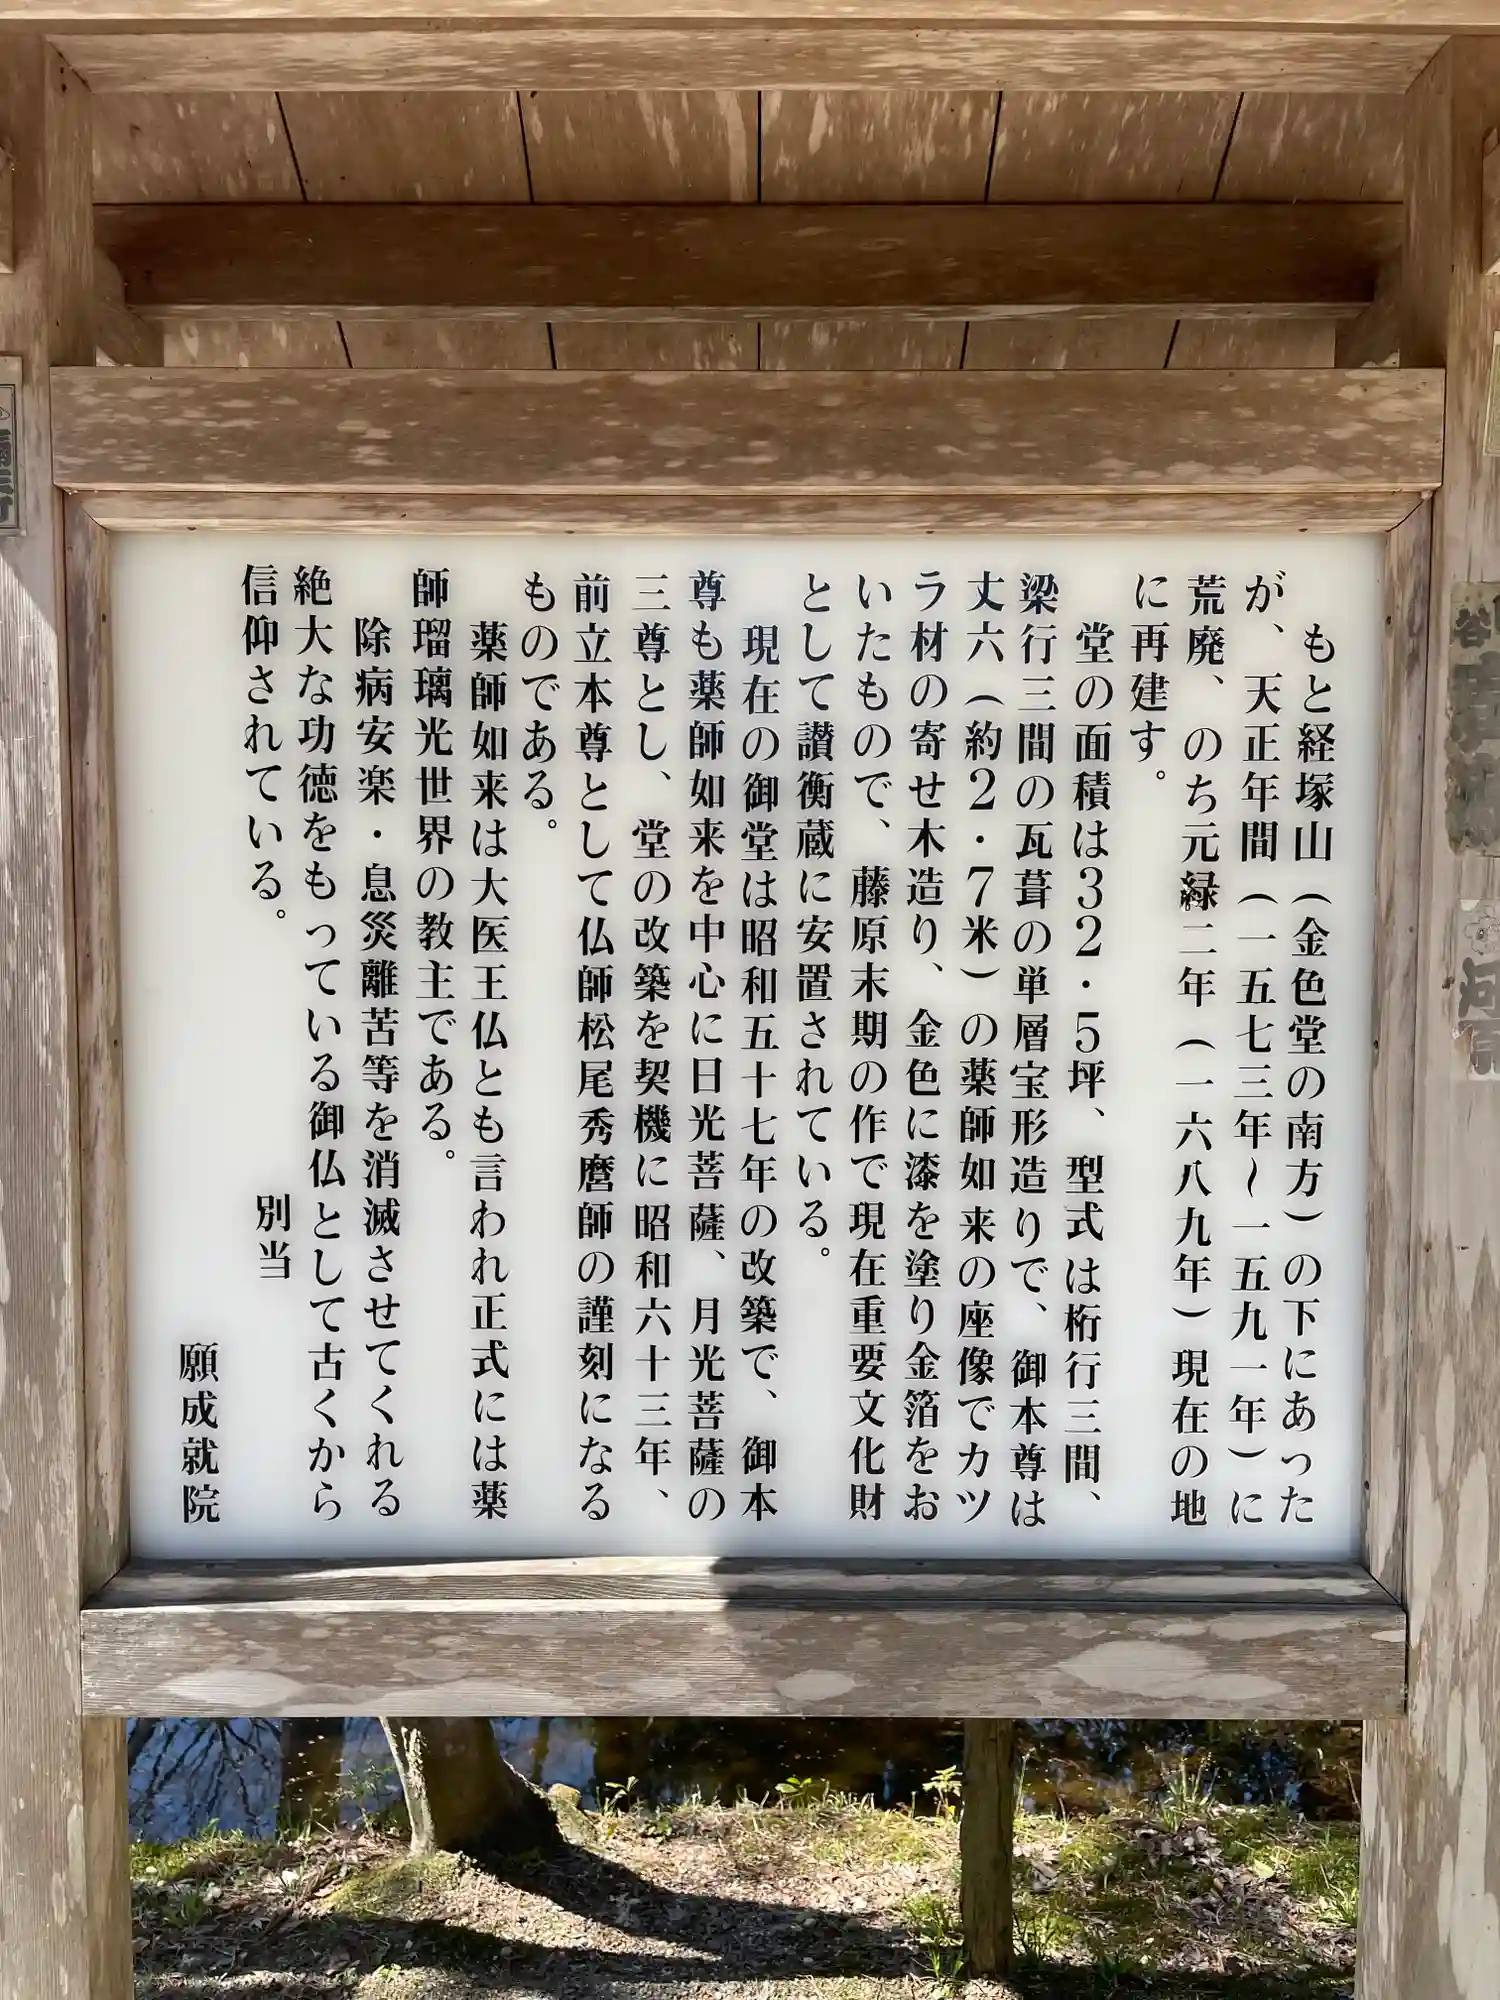 もと経塚山（金色堂の南方）の下にあった
が、天正年間（一五七三年～一五九一年）に
荒廃、のち元緑二年（一六八九年）現在の地
に再建す。
堂の面積は３２・５坪、型式は桁行三間、
梁行三間の瓦葺の単層宝形造りで、御本尊は
丈六（約２・７米）の薬師如来の座像でカツ
ラ材の寄せ木造り、金色に漆を塗り金箔をお
いたもので、藤原末期の作で現在重要文化財
として讃衡蔵に安置されている。
現在の御堂は昭和五十七年の改築で、御本
尊も薬師如来を中心に日光菩薩、月光菩薩の
三尊とし、堂の改築を契機に昭和六十三年、
前立本尊として仏師松尾秀麿師の謹刻になる
ものである。
薬師如来は大医王仏とも言われ正式には薬
師瑠璃光世界の教主である。
除病安楽・息災離苦等を消滅させてくれる
絶大な功徳をもっている御仏として古くから
信仰されている。
別当
願成就院